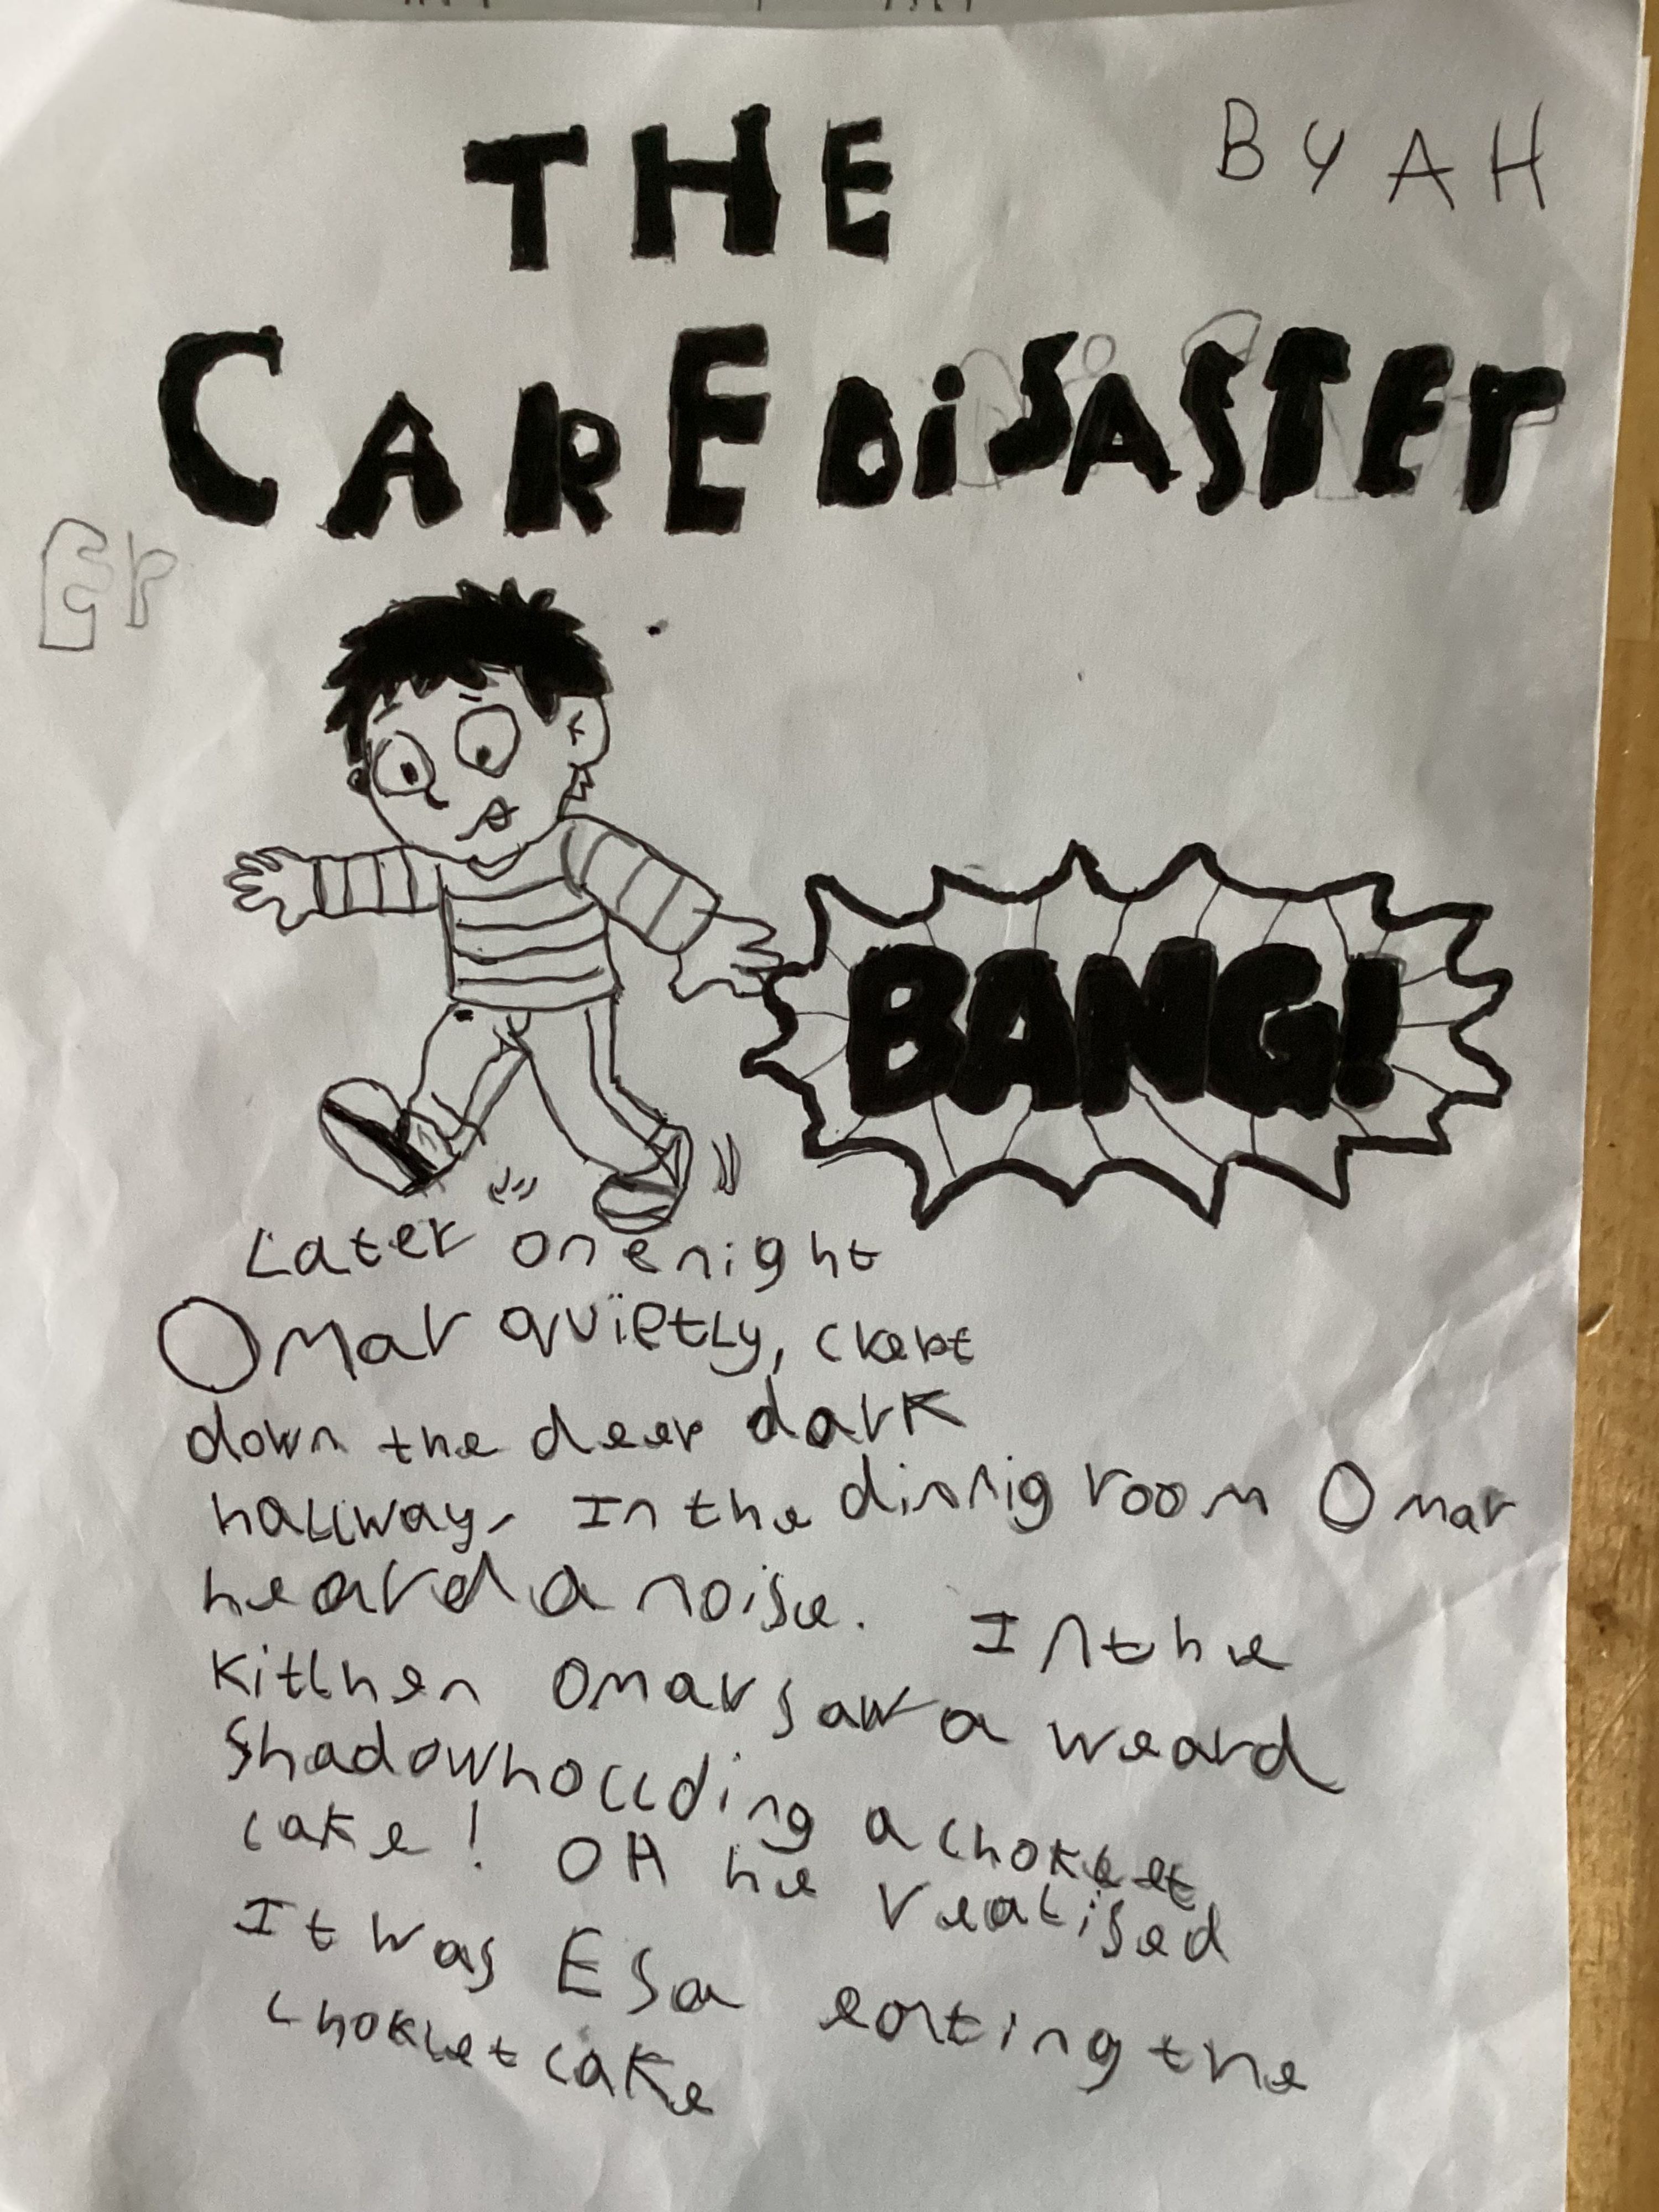 THE
BY AH
CAREDiSASTEr
Er
BANG!
Later one night
Omar quietly, crept
down the deep dark
hallway. In the dinnig room Omar
heard a noise. In the
kitchen Omar saw a weard
Shadow hollding a choklet
cake! OH he realised
It was Esa eating the
choklet cake